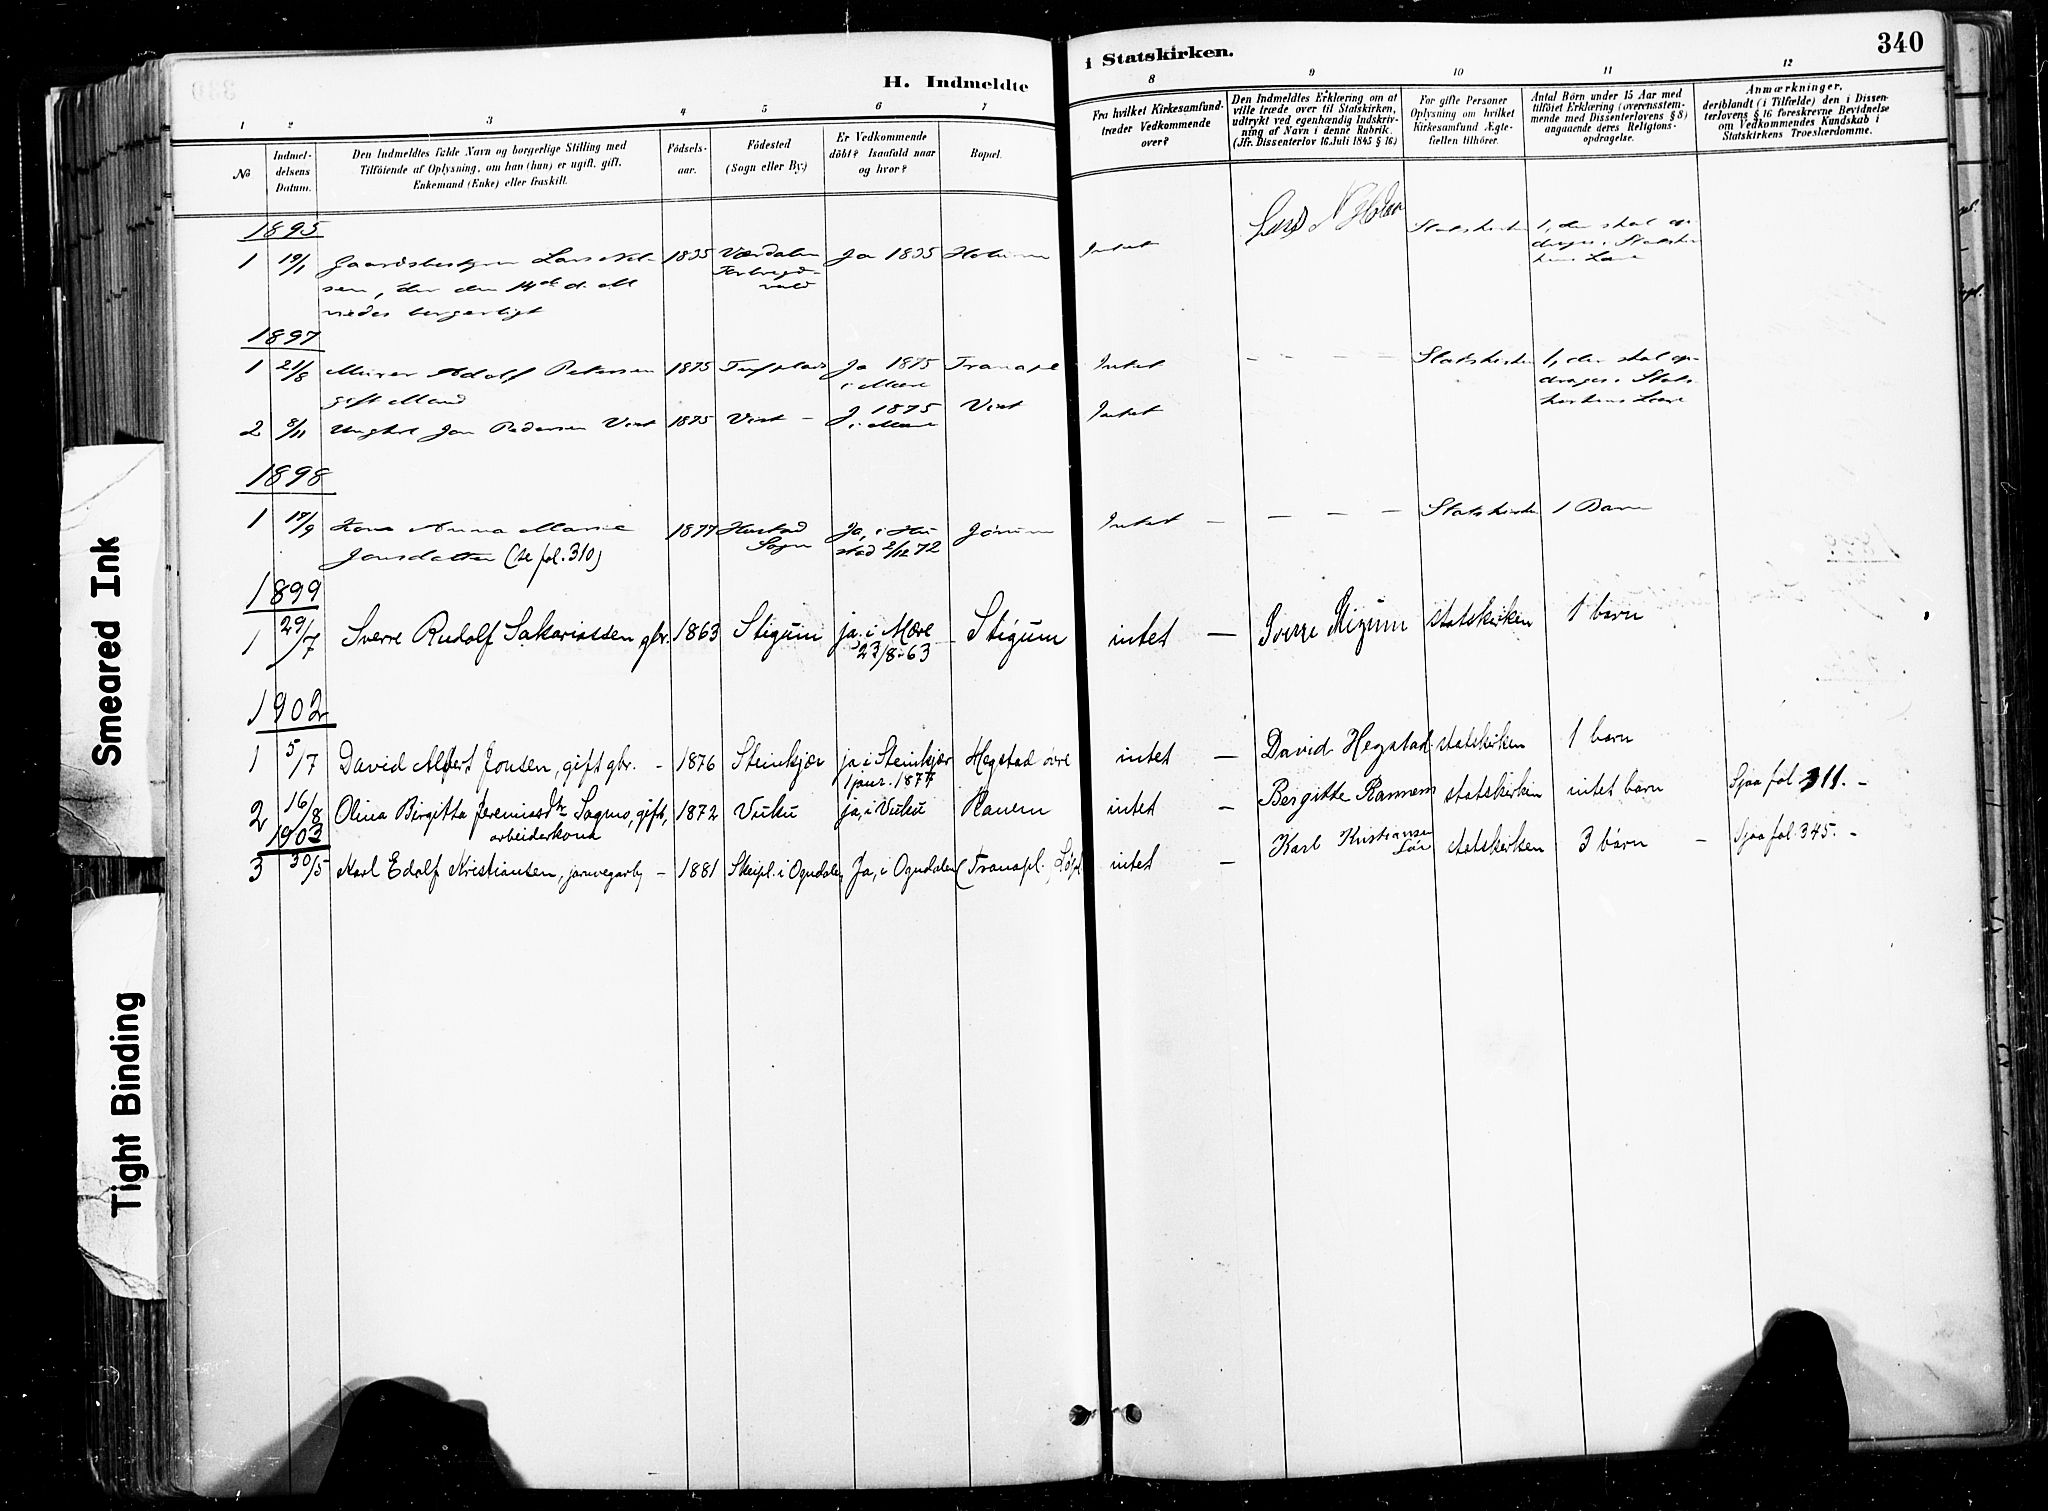 340
H. Indmeldte
i Statskirken.
1 2 3 4 5 6 7 8 9 10 11 12
No
Indmel-
delsens
Datum.
Den Indmeldtes fulde Navn og borgerlige Stilling med
Tilföiende af Oplysning, om han (hun) er ugift, gift,
Enkemand (Enke) eller fraskilt.
Födsels-
aar.
Födested
(Sogn eller By.)
Er Vedkommende
döbt? Isaafald naar
og hvor?
Bopæl.
Fra hvilket Kirkesamfund-
træder Vedkommende
over?
Den Indmeldtes Erklæring om at
ville træde over til Statskirken,
udtrykt ved egenhændig Indskriv-
ning af Navn i denne Rubrik.
(Jfr. Dissenterlov 16. Juli 1845 § 16.)
For gifte Personer
Oplysning om hvilket
Kirkesamfund Ægte-
fællen tilhörer.
Antal Börn under 15 Aar med
tilföiet Erklæring (overensstem-
mende med Dissenterlovens § 8)
angaaende deres Religions-
opdragelse.
Anmærkninger,
deriblandt (i Tilfælde) den i Dissen-
terlovens § 16 foreskrevne Bevidnelse
om Vedkommendes Kundskab i
Statskirkens Troeslærdomme.
1895
1 19/1 Lars Nel- 1835 Værdalen Ja 1835 Intet Statskirken 1, der skal op-
sen, den 14de d. M
drages i Statskir-
kens Lære
borgerligt
1897
1 21/8 Murer Adolf Petersen 1875 Ja 1875 Tranapl Intet - - - - Statskirken 1, der skal op-
gift Mand i Mære
drages i Stats-
kirkens Lære
2 8/11 Ungkl Jon Pedersen Vist 1875 Vist - J 1875 Vist Intet
i Mære
1898
1 17/9 Kone Anna Marie 1877 Hustad Ja, i Hu Intet - - - - Statskirken 1 Barn
Jonsdatter (se fol. 310) Sogn stad 2/12 72
1899
1 29/7 Sverre Rudolf Sakariassen gbr. 1863 Stigum ja, i Mære Stigum intet - Sverre Stigum statskirken 1 barn
23/8-63
1902
1 5/7 David Albert Jonsen, gift gbr. - 1876 Steinkjær ja i Steinkjær Hegstad övre intet - David Hegstad statskirken 1 barn
1 jan. 1877
2 16/8 Olina Birgitta Jeremiasdtr Sagmo, gift, 1872 Vuku ja, i Vuku intet - Bergitte Rannem statskirken intet barn Sjaa fol 311. -
arbeiderkona
1903
3 30/5 Karl Edolf Kristiansen, jarnvegarb - 1881 Skeipl. i Ogndalen Ja, i Ogndalen (Tranapl. intet - Karl Kristiansen statskirken 3 börn - Sjaa fol. 345. -
Smeared Ink
Tight Binding